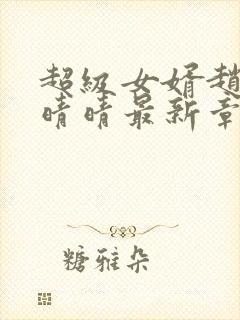 超级女婿赵
晴晴最新章
糖雅朵